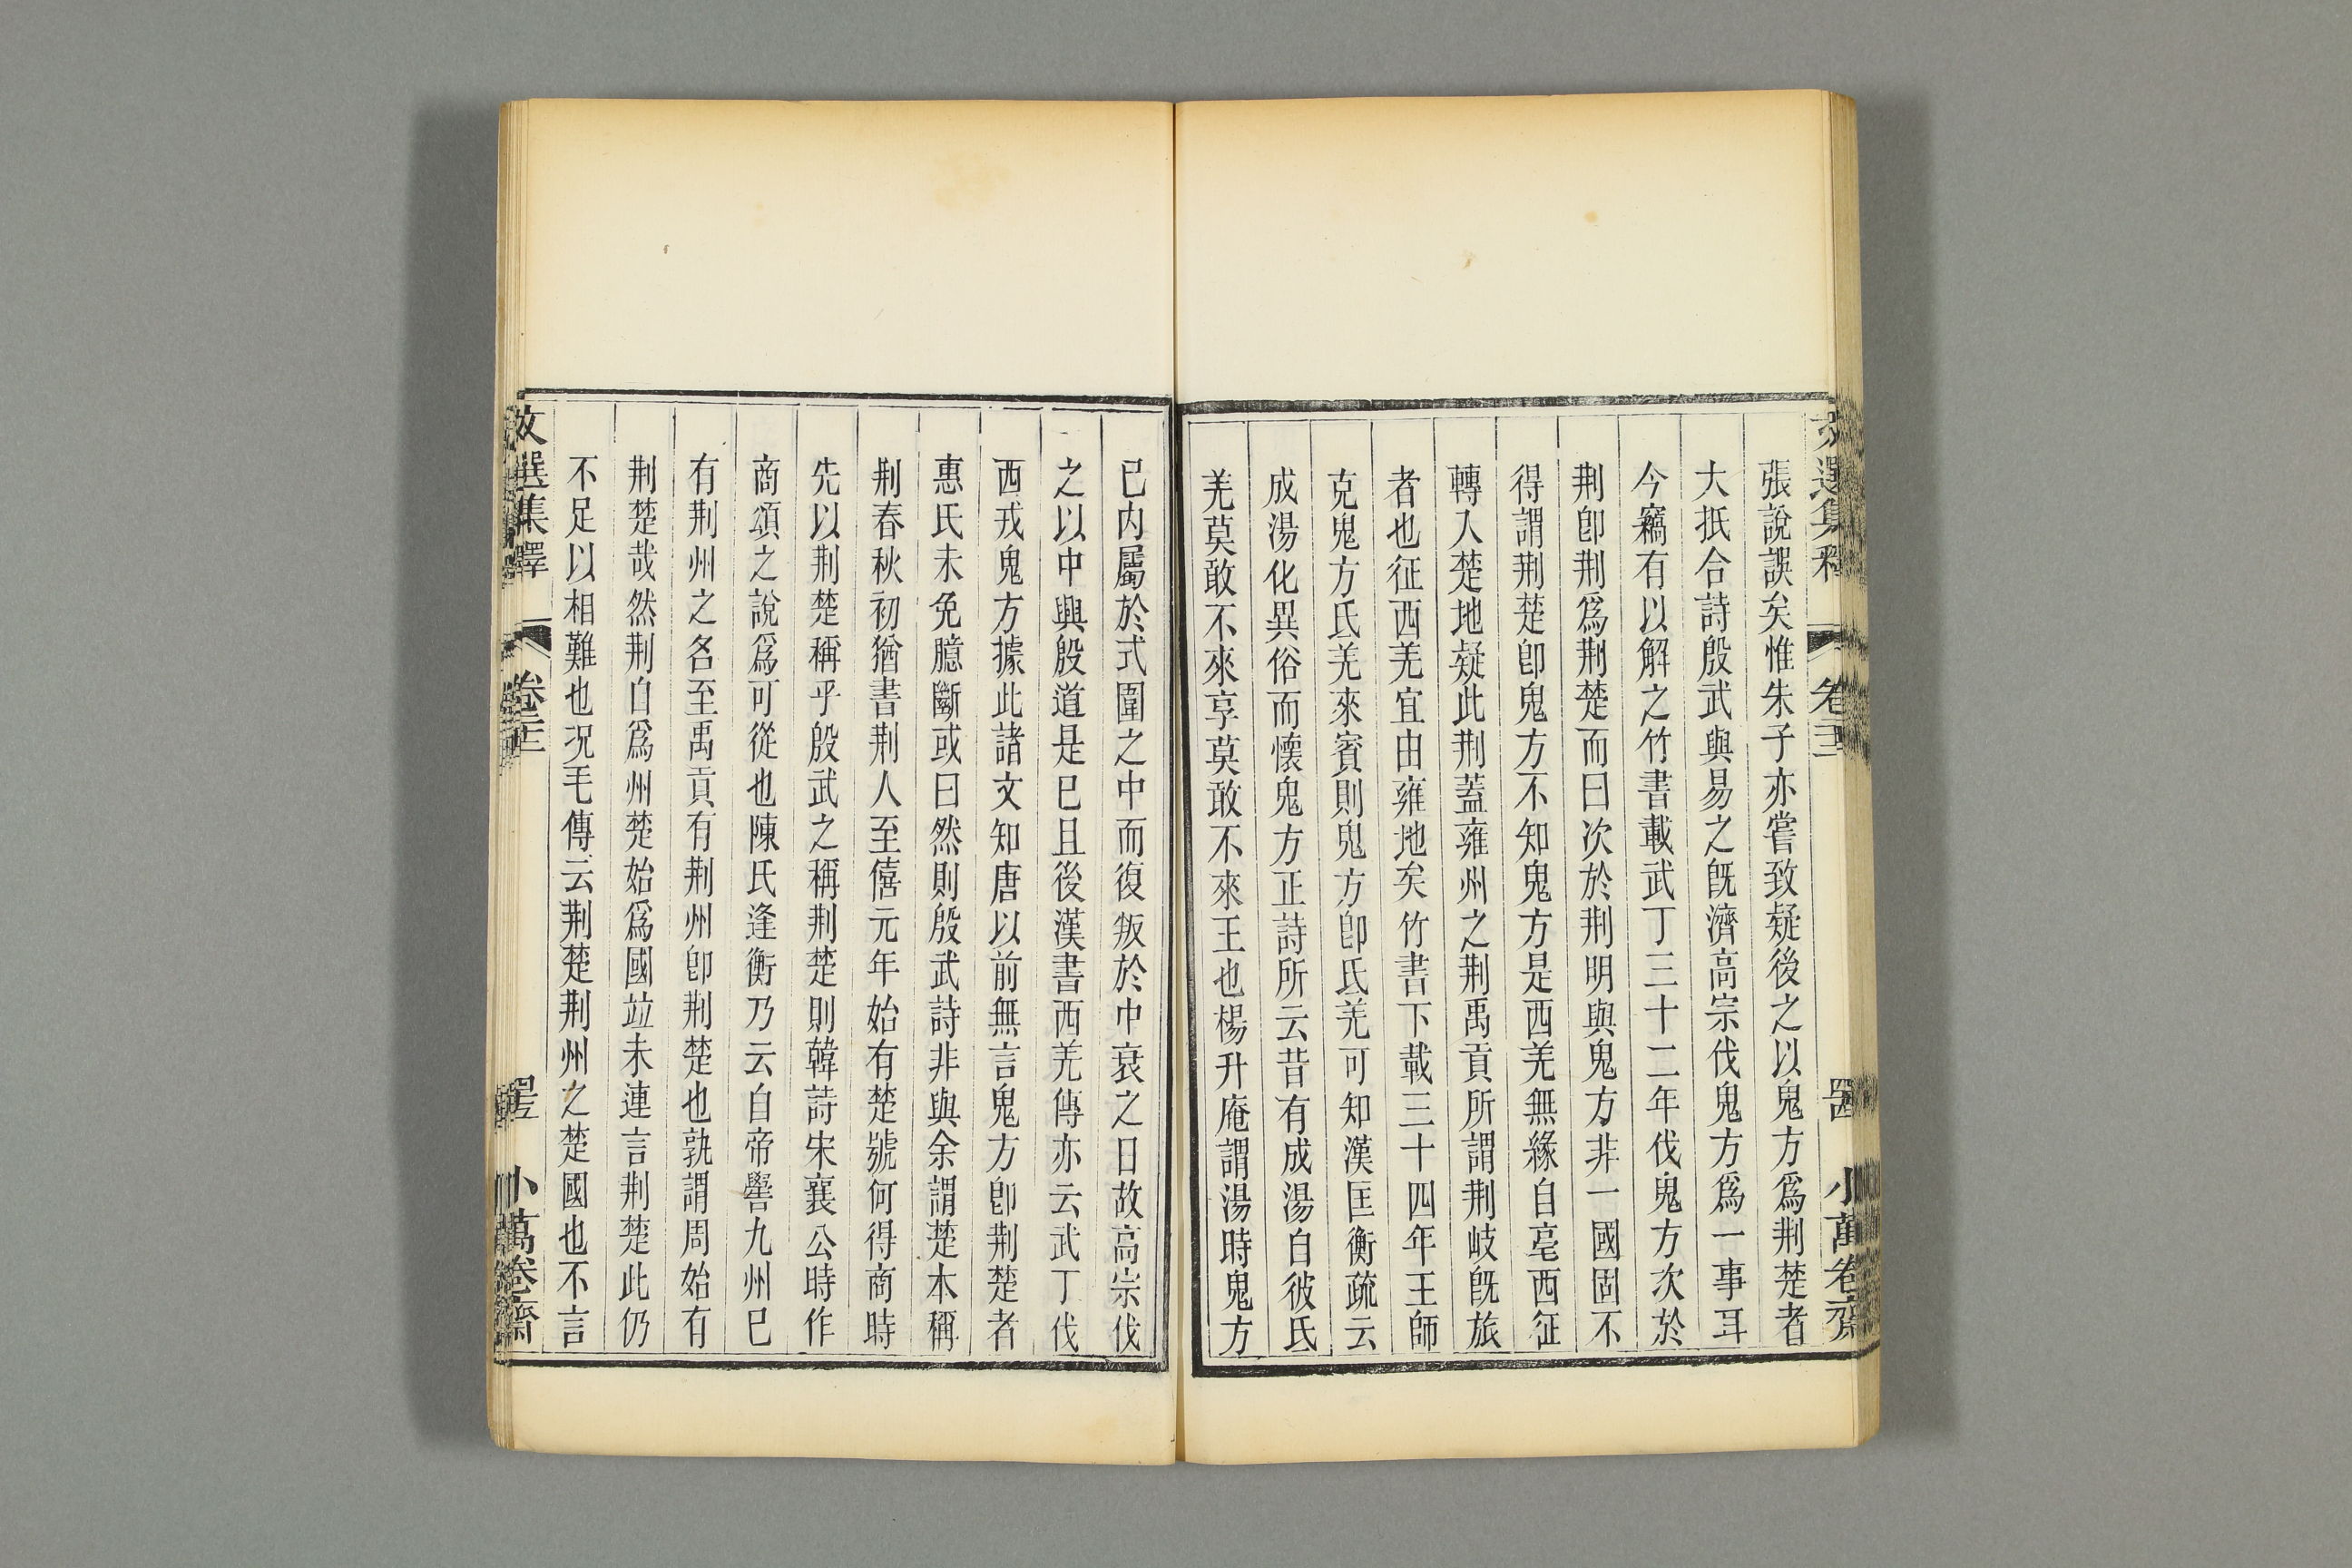 張說誤矣惟朱子亦嘗致疑後之以鬼方爲荆楚者
大抵合詩殷武與易之旣濟高宗伐鬼方爲一事耳
今竊有以解之竹書載武丁三十二年伐鬼方次於
荆卽荆爲荆楚而曰次於荆明與鬼方非一國固不
得謂荆楚卽鬼方不知鬼方是西羌無緣自亳西征
轉入楚地疑此荆蓋雍州之荆禹貢所謂荆岐旣旅
者也征西羌宜由雍地矣竹書下載三十四年王師
克鬼方氐羌來賓則鬼方卽氐羌可知漢匡衡疏云
成湯化異俗而懷鬼方正詩所云昔有成湯自彼氐
羌莫敢不來享莫敢不來王也楊升庵謂湯時鬼方
已內屬於式圍之中而復叛於中衰之日故高宗伐
之以中興殷道是已且後漢書西羌傳亦云武丁伐
西戎鬼方據此諸文知唐以前無言鬼方卽荆楚者
惠氏未免臆斷或曰然則殷武詩非與余謂楚本稱
荆春秋初猶書荆人至僖元年始有楚號何得商時
先以荆楚稱乎殷武之稱荆楚則韓詩宋襄公時作
商頌之說爲可從也陳氏逢衡乃云自帝嚳九州已
有荆州之名至禹貢有荆州卽荆楚也孰謂周始有
荆楚哉然荆自爲州楚始爲國竝未連言荆楚此仍
不足以相難也況毛傳云荆楚荆州之楚國也不言
文選集釋 卷二十三 小萬卷齋